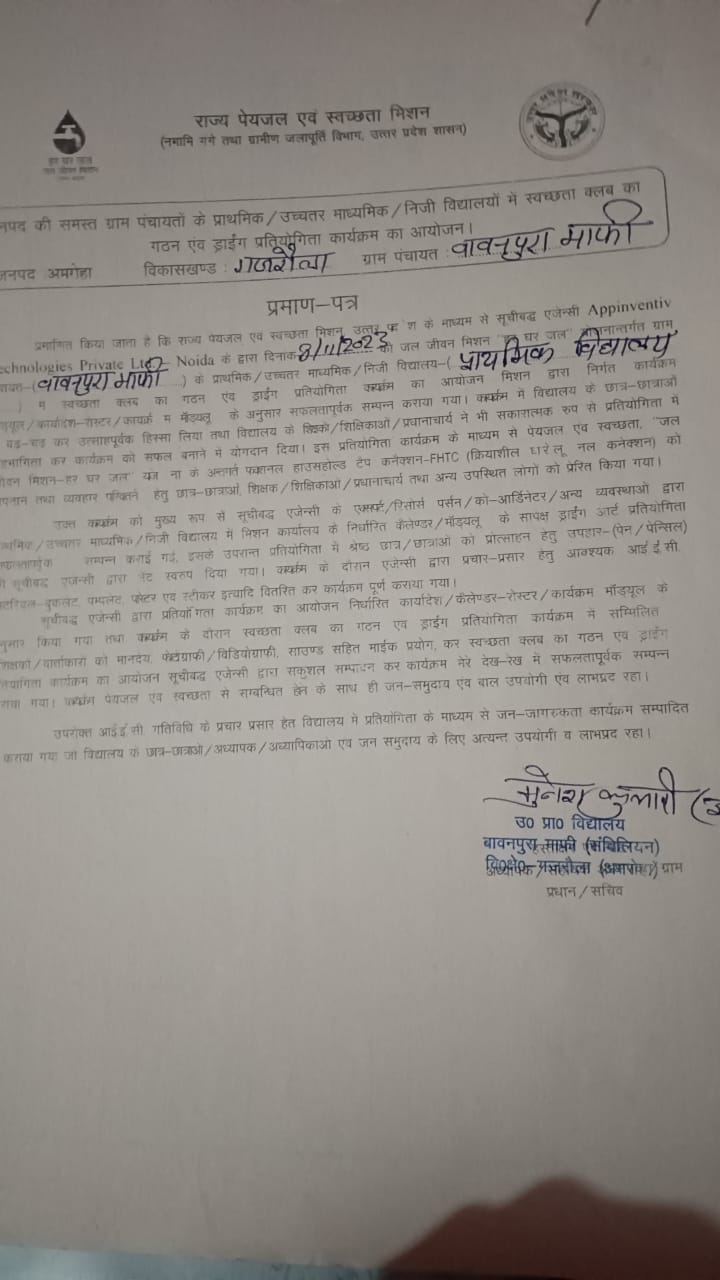 राज्य पेयजल एवं स्वच्छता मिशन
(नमामि गंगे तथा ग्रामीण जलापूर्ति विभाग, उत्तर प्रदेश शासन)
हर घर जल
जल जीवन मिशन
नपद की समस्त ग्राम पंचायतों के प्राथमिक/उच्चतर माध्यमिक/निजी विद्यालयों में स्वच्छता क्लब का
गठन एंव ड्राईंग प्रतियोगिता कार्यक्रम का आयोजन।
जनपद अमरोहा विकासखण्ड : गजरौला ग्राम पंचायत : बावनपुरा माफी
प्रमाण-पत्र
प्रमाणित किया जाता है कि राज्य पेयजल एवं स्वच्छता मिशन, उत्तर के माध्यम से सूचीबद्ध एजेन्सी Appinventiv
echnologies Private Ltd. Noida के द्वारा दिनांक 8/11/2023 को जल जीवन मिशन "हर घर जल" योजनान्तर्गत ग्राम
यत-(बावनपुरा माफी ) के प्राथमिक/उच्चतर माध्यमिक/निजी विद्यालय-( प्राथमिक विद्यालय
) में स्वच्छता क्लब का गठन एंव ड्राईंग प्रतियोगिता का आयोजन मिशन द्वारा निर्गत कार्यक्रम
यूल/कार्यादेश-रोस्टर/ के अनुसार सफलतापूर्वक सम्पन्न कराया गया। में विद्यालय के छात्र-छात्राओं
बढ़-चढ़ कर उत्साहपूर्वक हिस्सा लिया तथा विद्यालय के /शिक्षिकाओं/प्रधानाचार्य ने भी सकारात्मक रुप से प्रतियोगिता में
हभागिता कर कार्यक्रम को सफल बनाने में योगदान दिया। इस प्रतियोगिता कार्यक्रम के माध्यम से पेयजल एंव स्वच्छता, "जल
वन मिशन-हर घर जल" के अन्तर्गत फंक्शनल हाउसहोल्ड टैप कनेक्शन-FHTC (क्रियाशील घरेलू नल कनेक्शन) को
पनाने तथा व्यवहार हेतु छात्र-छात्राओं, शिक्षक/शिक्षिकाओं/प्रधानाचार्य तथा अन्य उपस्थित लोगों को प्रेरित किया गया।
उक्त को मुख्य रुप से सूचीबद्ध एजेन्सी के एक्सपर्ट/रिसोर्स पर्सन/को-आर्डिनेटर/अन्य व्यवस्थाओं द्वारा
थमिक/उच्चतर माध्यमिक/निजी विद्यालय में मिशन कार्यालय के निर्धारित कैलेण्डर/मॉड्यूल के सापेक्ष ड्राईंग आर्ट प्रतियोगिता
फलतापूर्वक सम्पन्न कराई गई, इसके उपरान्त प्रतियोगिता में श्रेष्ठ छात्र/छात्राओं को प्रोत्साहन हेतु उपहार-(पेन/पेन्सिल)
सूचीबद्ध एजेन्सी द्वारा भेंट स्वरुप दिया गया। के दौरान एजेन्सी द्वारा प्रचार-प्रसार हेतु आवश्यक आई.ई.सी.
टेरियल-बुकलेट, पम्पलेट, पोस्टर एंव स्टीकर इत्यादि वितरित कर कार्यक्रम पूर्ण कराया गया।
सूचीबद्ध एजेन्सी द्वारा प्रतियोगिता कार्यक्रम का आयोजन निर्धारित कार्यादेश/कैलेण्डर-रोस्टर/कार्यक्रम मॉड्यूल के
नुसार किया गया तथा के दौरान स्वच्छता क्लब का गठन एंव ड्राईंग प्रतियोगिता कार्यक्रम में सम्मिलित
शिक्षकों/वार्ताकारों को मानदेय, फोटोग्राफी/विडियोग्राफी, साउण्ड सहित माईक प्रयोग, कर स्वच्छता क्लब का गठन एंव ड्राईंग
तियोगिता कार्यक्रम का आयोजन सूचीबद्ध एजेन्सी द्वारा सकुशल सम्पादन कर कार्यक्रम मेरे देख-रेख में सफलतापूर्वक सम्पन्न
गया। पेयजल एंव स्वच्छता से सम्बन्धित होने के साथ ही जन-समुदाय एंव बाल उपयोगी एंव लाभप्रद रहा।
उपरोक्त आई.ई.सी. गतिविधि के प्रचार प्रसार हेतु विद्यालय में प्रतियोगिता के माध्यम से जन-जागरुकता कार्यक्रम सम्पादित
कराया गया जो विद्यालय के छात्र-छात्राओं/अध्यापक/अध्यापिकाओं एंव जन समुदाय के लिए अत्यन्त उपयोगी व लाभप्रद रहा।
मुनेश कुमारी
उ० प्रा० विद्यालय
बावनपुरा माफी (संविलियन)
वि०क्षे०- गजरौला (अमरोहा) ग्राम
प्रधान/सचिव